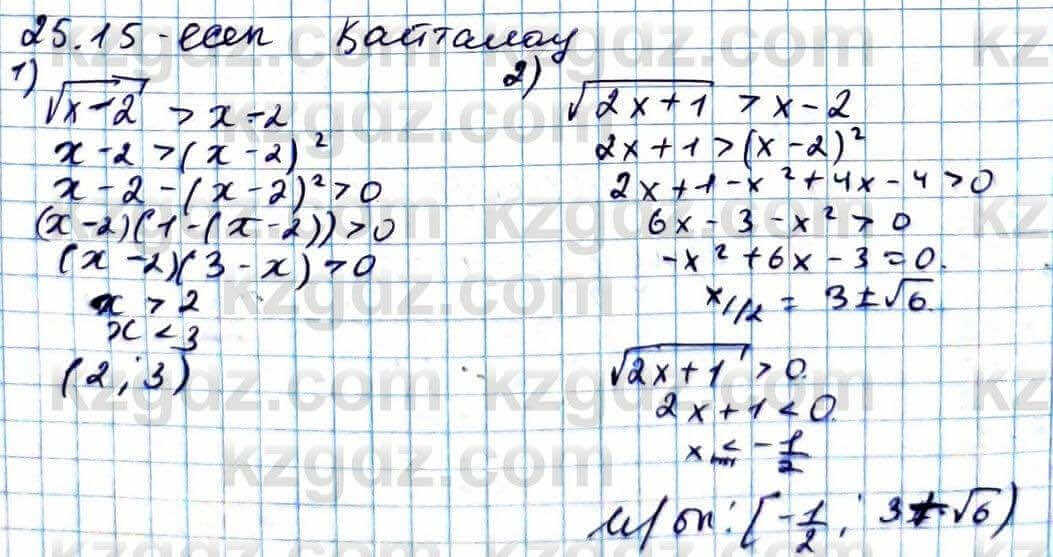 25.15-есеп Қайталау
1)
√x-2 > x-2
x-2 > (x-2)²
x-2-(x-2)²>0
(x-2)(1-(x-2))>0
(x-2)(3-x)>0
x > 2
x < 3
(2; 3)
2)
√2x+1 > x-2
2x+1>(x-2)²
2x+1-x²+4x-4>0
6x-3-x²>0
-x²+6x-3=0.
x1/2 = 3±√6.
√2x+1 > 0.
2x+1<0.
x ≤ -1/2
[-1/2; 3+√6)
kzgdz.com